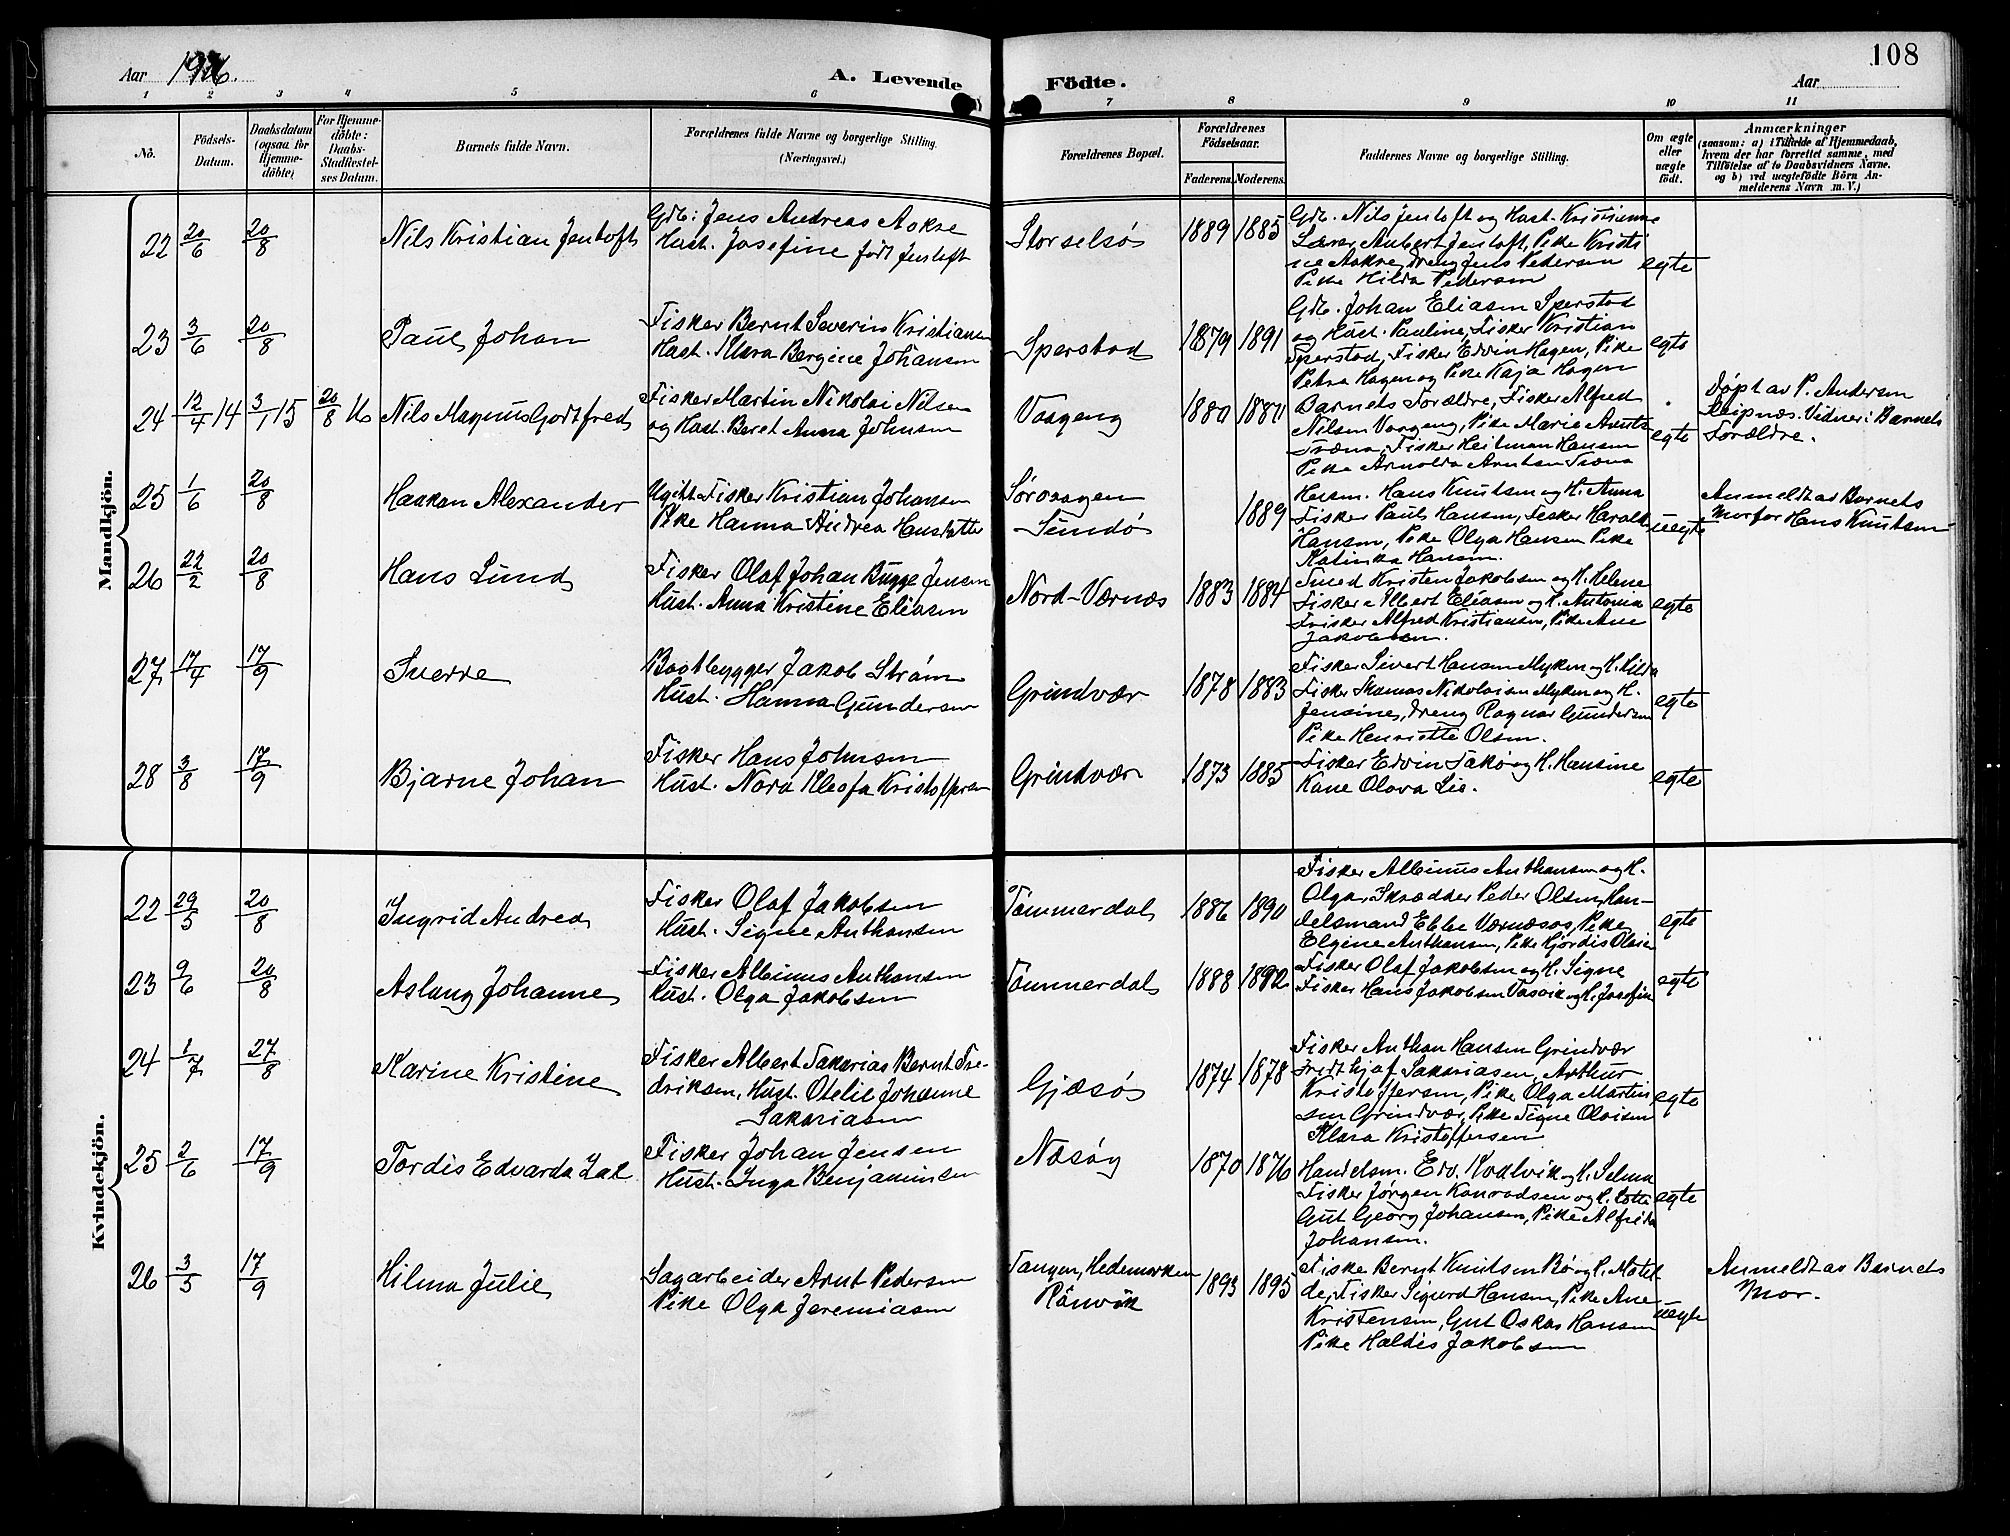 Aar 1916.
A. Levende Födte.
Aar
108
1 2 3 4 5 6 7 8 9 10 11
No.
Födsels-Datum.
Daabsdatum (ogsaa for Hjemmedöbte)
For Hjemmedöbte: Daabs-Stadfestelses Datum.
Barnets fulde Navn.
Forældrenes fulde Navne og borgerlige Stilling.
(Næringsvei.)
Forældrenes Bopæl.
Forældrenes Födselsaar.
Faderens. Moderens.
Faddernes Navne og borgerlige Stilling.
Om ægte eller uægte födt.
Anmærkninger
(saasom: a) i Tilfælde af Hjemmedaab,
hvem der har forrettet samme, med
Tilföielse af to Daabsvidners Navne.
og b) ved uægtefödte Börn An-
melderens Navn m. V.)
Mandkjön.
22 20/6 20/8 Nils Kristian Jentoft
Gdb: Jens Andreas Aakre
Hust. Josefine født Jentoft
Storselsø 1889 1885
Gdb. Nils Jentoft og Hust. Kristianne
Lærer Aubert Jentoft, Pike Kristi
ne Aakre, Dreng Jens Pedersen
Pike Hilda Pedersen
egte
23 3/6 20/8 Paul Johan
Fisker Bernt Severin Kristiansen
Hust. Klara Bergine Johansen
Sperstad 1879 1891
Gdb. Johan Eliasen Sperstad
og Hust. Pauline, Fisker Kristian
Sperstad, Fisker Edvin Hagen, Pike
Petra Hagen og Pike Kaja Hagen
egte
24 12/4 14 3/1 15 20/8 16 Nils Magnus Gotfred
Fisker Martin Nikolai Nilsen
og Hust. Beret Anna Johnsen
Vaageng 1880 1880
Barnets Forældre, Fisker Alfred
Nilsen Vaageng, Pike Marie Arnts
Træna, Fisker Heitman Hansen
Pike Arnolda Arntsen Træna
egte
Døpt av P. Andersen
Leipnæs. Vidner: Barnets
Forældre.
25 1/6 20/8 Haakon Alexander
Ugift Fisker Kristian Johansen
Pike Hanna Andrea Hansdatter
Sørvaagen
Sundø
1889
Husm. Hans Knutsen og H. Anna
Fisker Paul Hansen, Fisker Harald
Hansen, Pike Olga Hansen Pike
Katinka Hansen.
uegte
Anmeldt av Barnets
Morfar Hans Knutsen
26 22/2 20/8 Hans Lund
Fisker Olaf Johan Bugge Jensen
Hust. Anna Kristine Eliasen
Nord-Værnæs 1883 1884
Smed Kristen Jakobsen og H. Helene
Fisker Albert Eliasen og H. Antonia
Fisker Alfred Kristiansen, Pike Ane
Jakobsen.
egte
27 17/4 17/9 Sverre
Baatbygger Jakob Strøm
Hust. Hanna Gundersen
Grindvær 1878 1883
Fisker Sivert Hansen Myken og H. Hilda
Fisker Tomas Nikolaisen Myken og H.
Jensine, Dreng Ragnar Gundersen
Pike Henriette Olsen.
egte
28 3/8 17/9 Bjarne Johan
Fisker Hans Johnsen
Hust. Nora Kleofa Kristoffersen
Grindvær 1873 1885
Fisker Edvin Takø og H. Hansine
Kone Olava Lie.
egte
Kvindekjön.
22 29/5 20/8 Ingrid Andrea
Fisker Olaf Jakobsen
Hust. Signe Anthonsen
Tømmerdal 1886 1890
Fisker Albinus Anthonsen og H.
Olga, Skrædder Peder Olsen, Han-
delsmand Ebbe Værnæsos, Pike
Elgine Anthonsen, Pike Hjørdis Olsen
egte
23 9/6 20/8 Aslaug Johanne
Fisker Albinus Anthonsen
Hust. Olga Jakobsen
Tømmerdal 1888 1892
Fisker Olaf Jakobsen og H. Signe
Fisker Hans Jakobsen Vasvik og H. Josefine
egte
24 1/7 27/8 Karine Kristine
Fisker Albert Sakarias Bernt Fre-
driksen, Hust. Otelie Johanne
Sakariasen
Gjæsø 1874 1878
Fisker Anthon Hansen Grindvær
Fridthjof Sakariasen, Arthur
Kristoffersen, Pike Olga Martin
sen Grindvær, Pike Signe Olaisen
Klara Kristoffersen
egte
25 2/6 17/9 Tordis Edvarda
Fisker Johan Jensen
Hust. Inga Benjaminsen
Næsøy 1870 1876
Handelsm. Edv. Kvalvik og H. Selma
Fisker Jørgen Konradsen og H. Lotte
Gut Georg Johansen, Pike Alfrida
Johansen.
egte
26 3/5 17/9 Hilma Julie
Sagarbeider Arnt Pedersen
Pike Olga Jeremiasen
Tangen, Hedemarken
Rånvik
1893 1895
Fisker Bernt Knutsen Bø og H. Matel
de, Fisker Sigurd Hansen, Pike Ane
Kristensen, Gut Oskar Hansen
Pike Haldis Jakobsen
uegte
Anmeldt av Barnets
Mor.